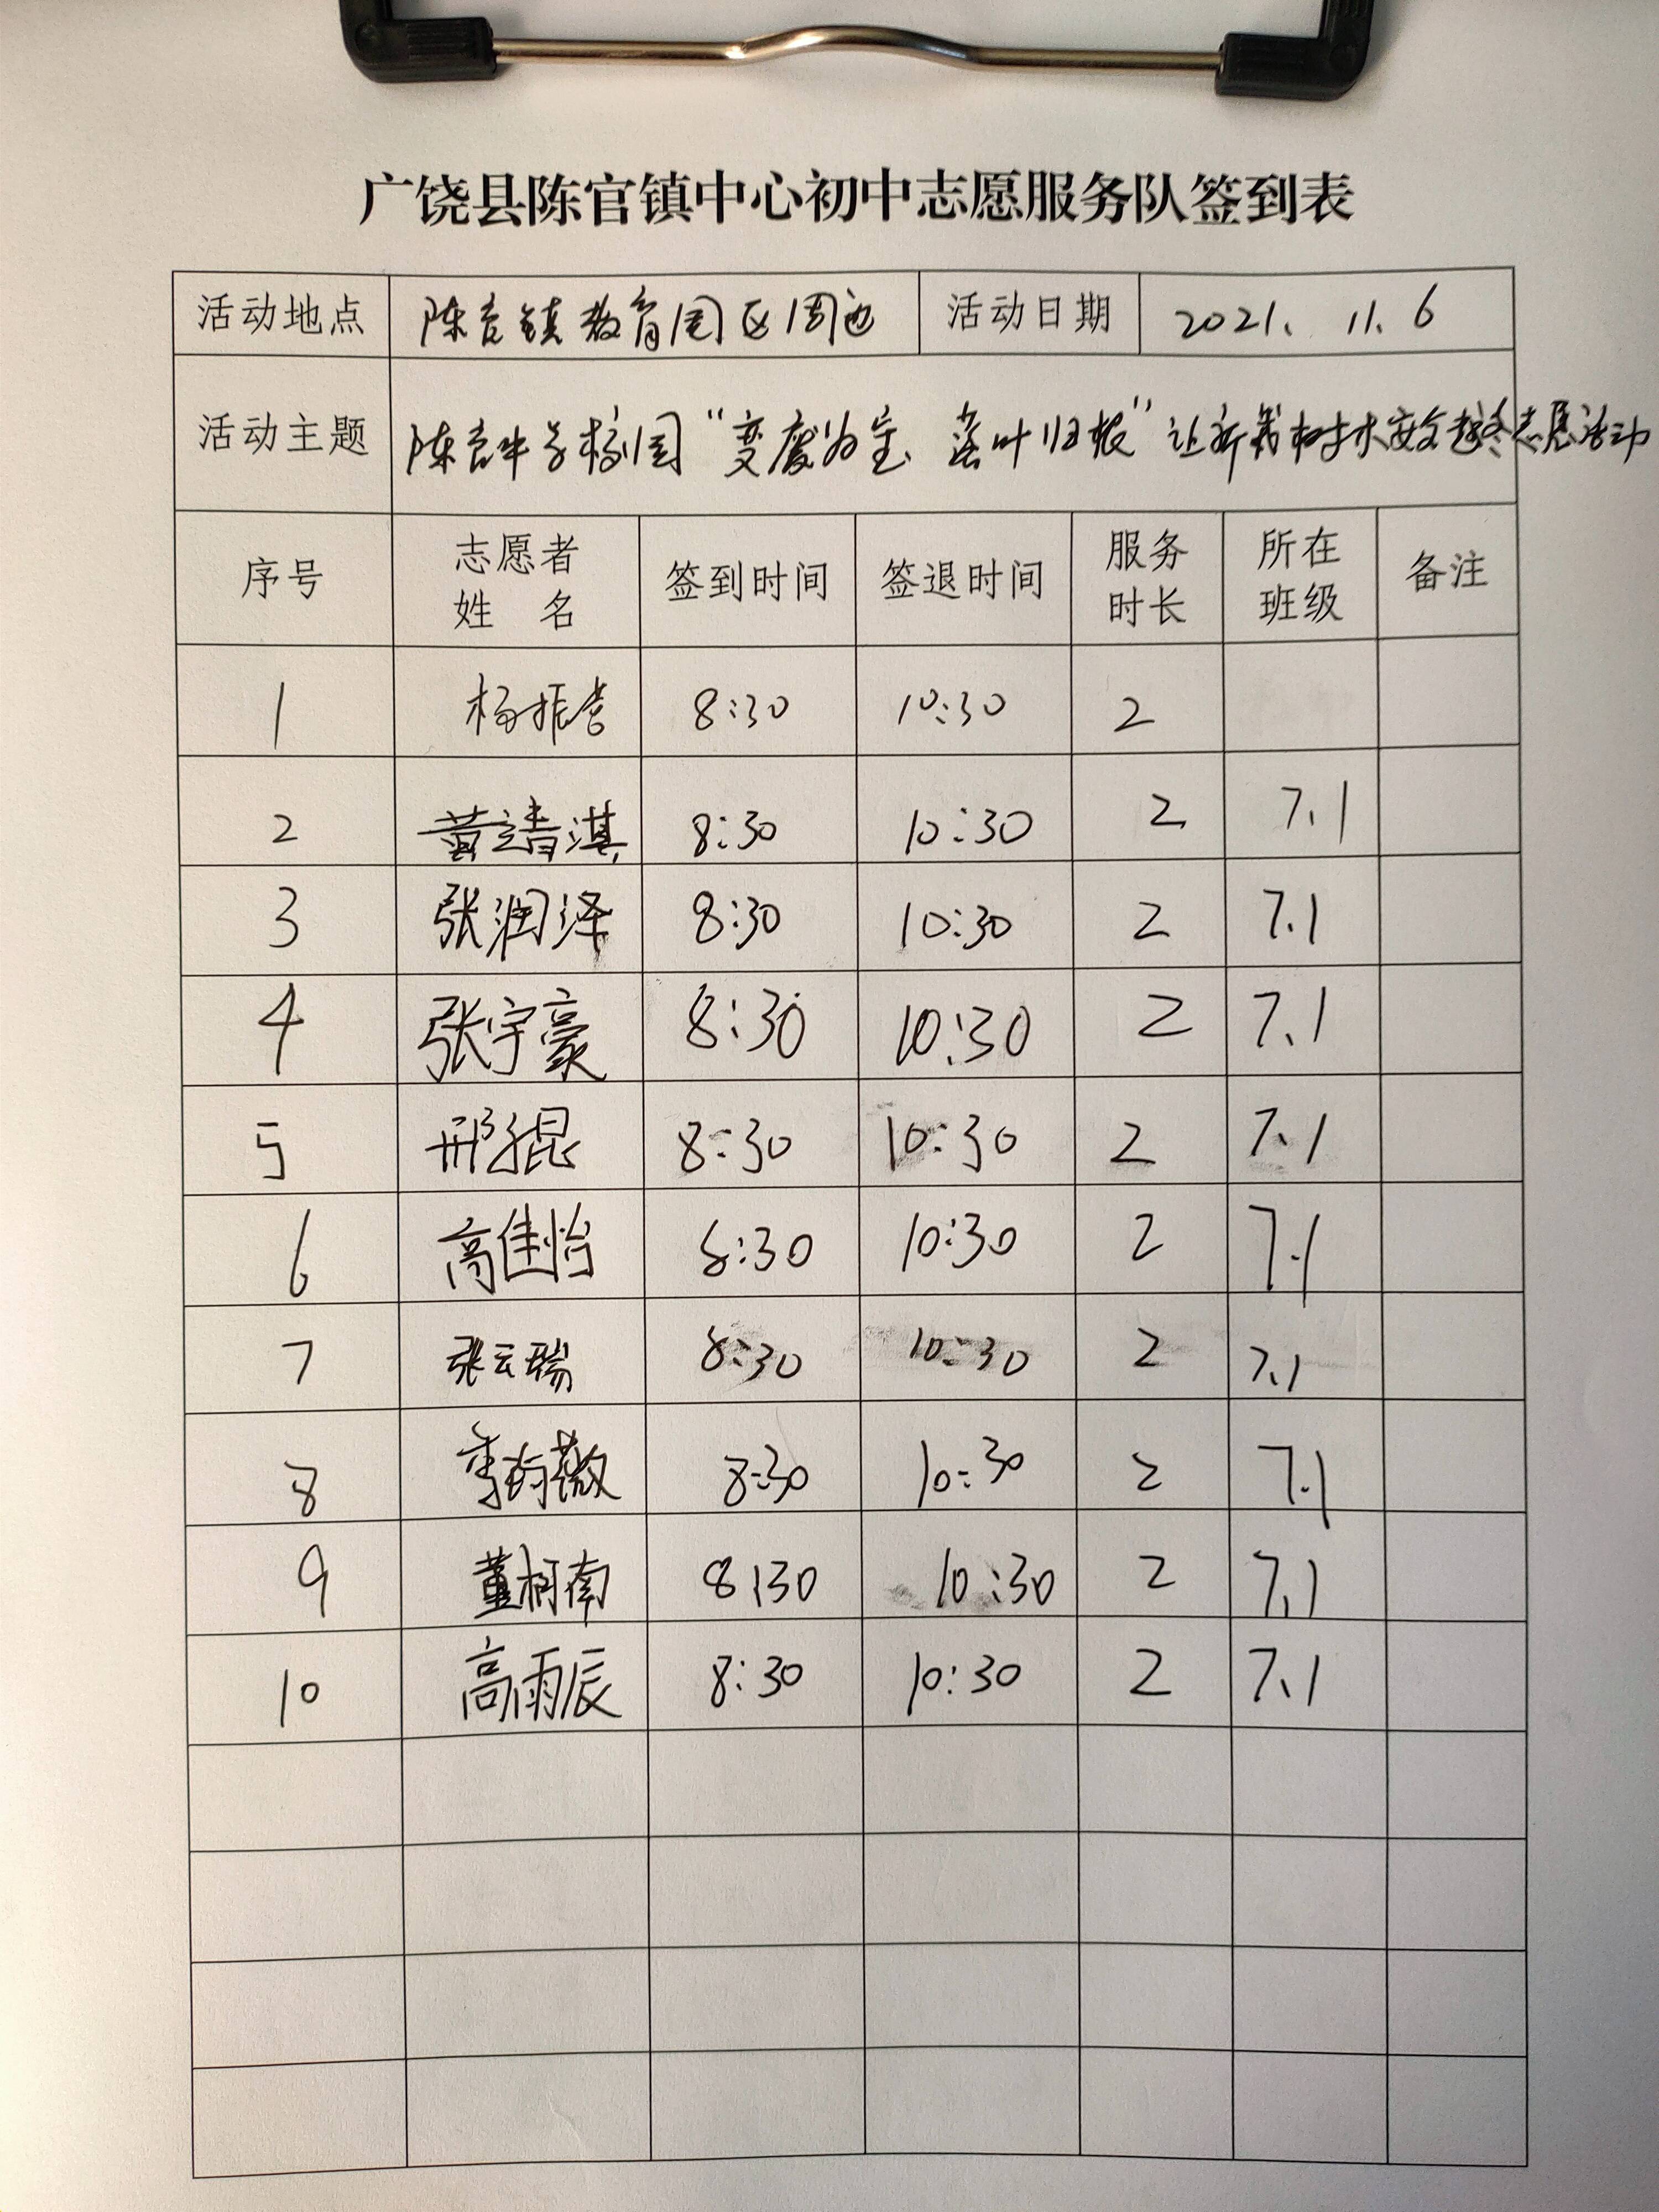 广饶县陈官镇中心初中志愿服务队签到表
活动地点 陈官镇教育园区周边 活动日期 2021. 11. 6
活动主题 陈官中学校园“变废为宝 落叶归根”让新栽树木安全越冬志愿活动
序号 志愿者姓 名 签到时间 签退时间 服务时长 所在班级 备注
1 杨振 8:30 10:30 2
2 黄靖淇 8:30 10:30 2 7.1
3 张润泽 8:30 10:30 2 7.1
4 张宇豪 8:30 10:30 2 7.1
5 邢子琨 8:30 10:30 2 7.1
6 高佳怡 8:30 10:30 2 7.1
7 张云瑞 8:30 10:30 2 7.1
8 李 薇 8:30 10:30 2 7.1
9 董柯南 8:30 10:30 2 7.1
10 高雨辰 8:30 10:30 2 7.1